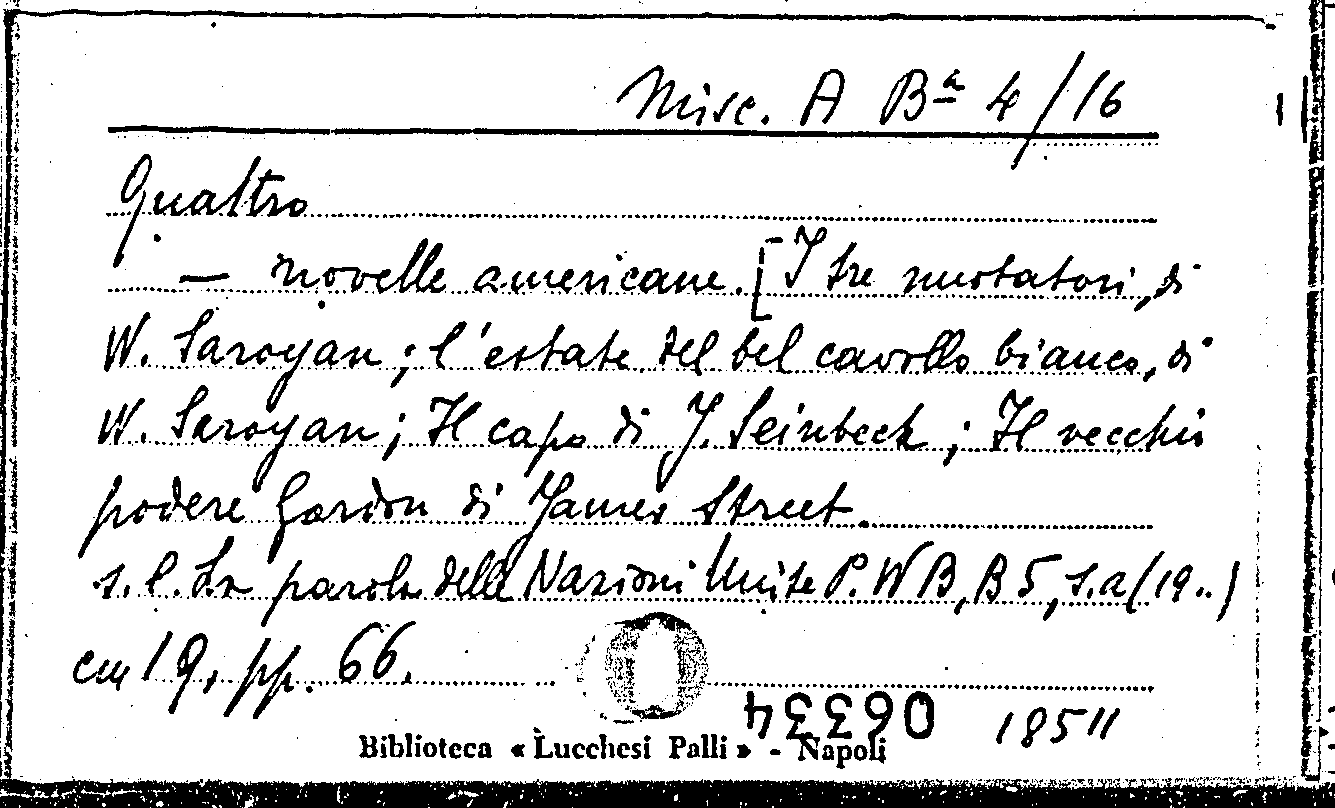 Misc. A Bª 4/16
Quattro
— novelle americane. [I tre nuotatori, di
W. Saroyan; l'estate del bel cavallo bianco, di
W. Saroyan; Il capo di J. Seinbeck; Il vecchio
podere Gordon di James Street.
s.l. La parola delle Nazioni Unite P.W B, B 5, s.a (19..)
cm 19, pp. 66.
06334 18511
Biblioteca « Lucchesi Palli » - Napoli